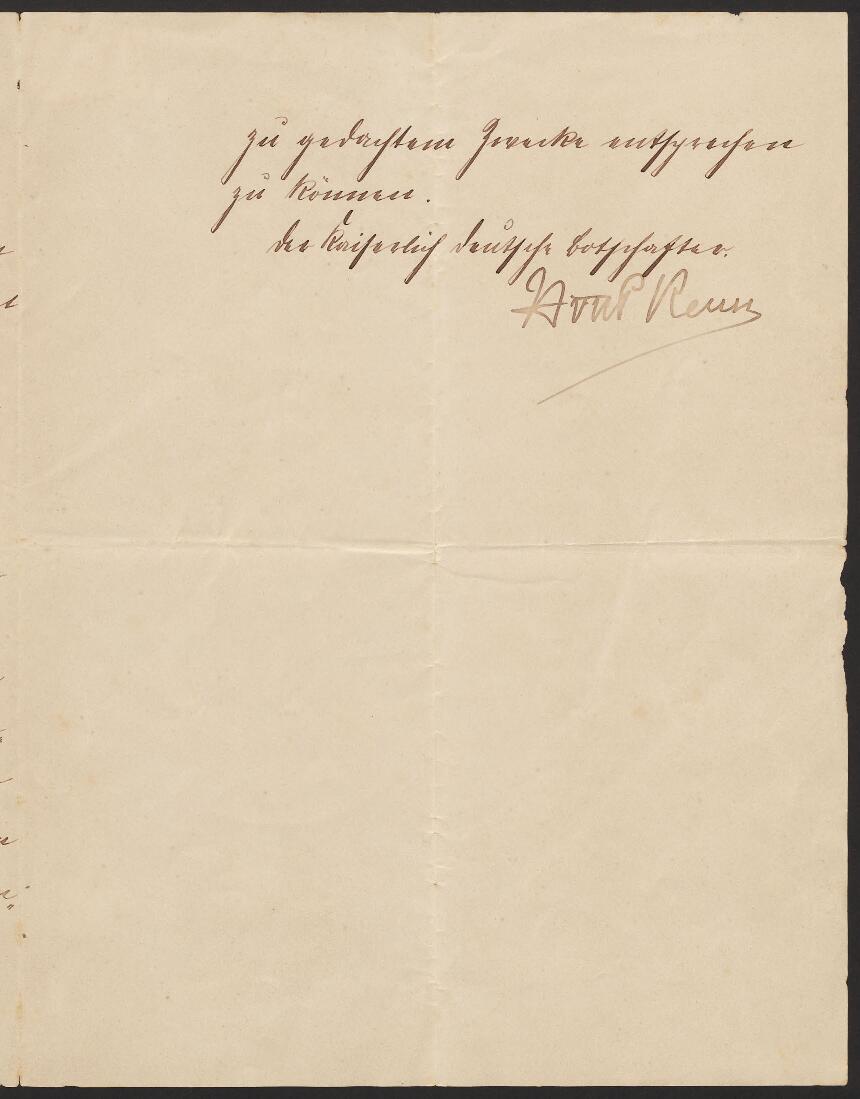 zu gedachtem Zwecke entsprechen
zu können.
Der Kaiserlich Deutsche Botschafter.
Reuss